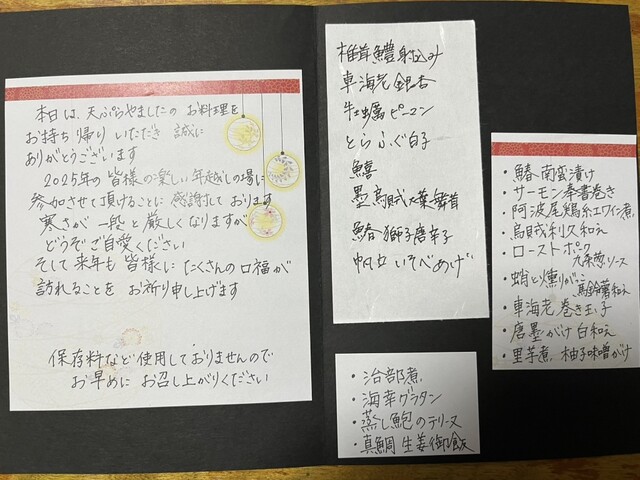 本日は、天ぷらやましたの お料理を
お持ち帰り いただき 誠に
ありがとうございます
2025年の 皆様の楽しい年越しの場に
参加させて頂けることに 感謝しております
寒さが 一段と 厳しくなりますが
どうぞご自愛ください
そして来年も 皆様に たくさんの口福が
訪れることを お祈り申し上げます
保存料など使用しておりませんので
お早めに お召し上がりください
椎茸 鱧射込み
車海老 銀杏
牡蠣 ピーマン
とらふぐ白子
鱚
墨烏賊 大葉 舞茸
鰆 獅子唐辛子
帆立 いそべあげ
・鰆 南蛮漬け
・サーモン奉書巻き
・阿波尾鶏 紅ワイン煮
・烏賊利久和え
・ローストポーク
九条葱ソース
・蛸と燻りがっこ
馬鈴薯和え
・車海老 巻き玉子
・唐墨がけ 白和え
・里芋煮 柚子味噌がけ
・治部煮
・海幸グラタン
・蒸し鮑のテリーヌ
・真鯛 生姜御飯